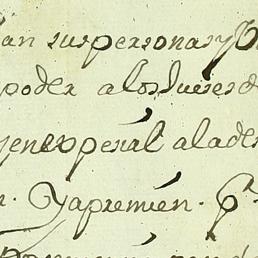 an suspersonas y b
poder alosJueces d
yenespeçial alade
n. Yapremien. P